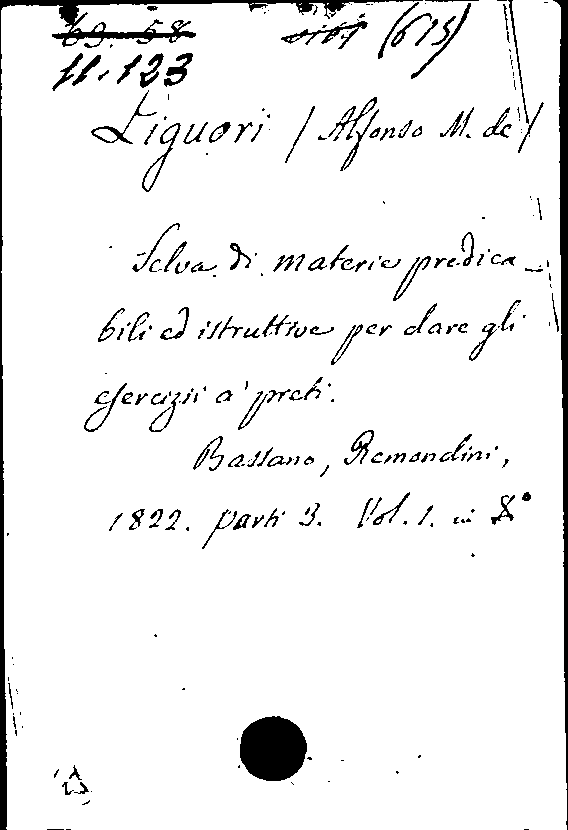 69. 58 (615)
11.123
Liguori / Alfonso M. de /
Selva di materie predica_
bili ed istruttive per dare gli
esercizii a' preti.
Bassano, Remondini,
1822. parti 3. Vol. 1. in 8°